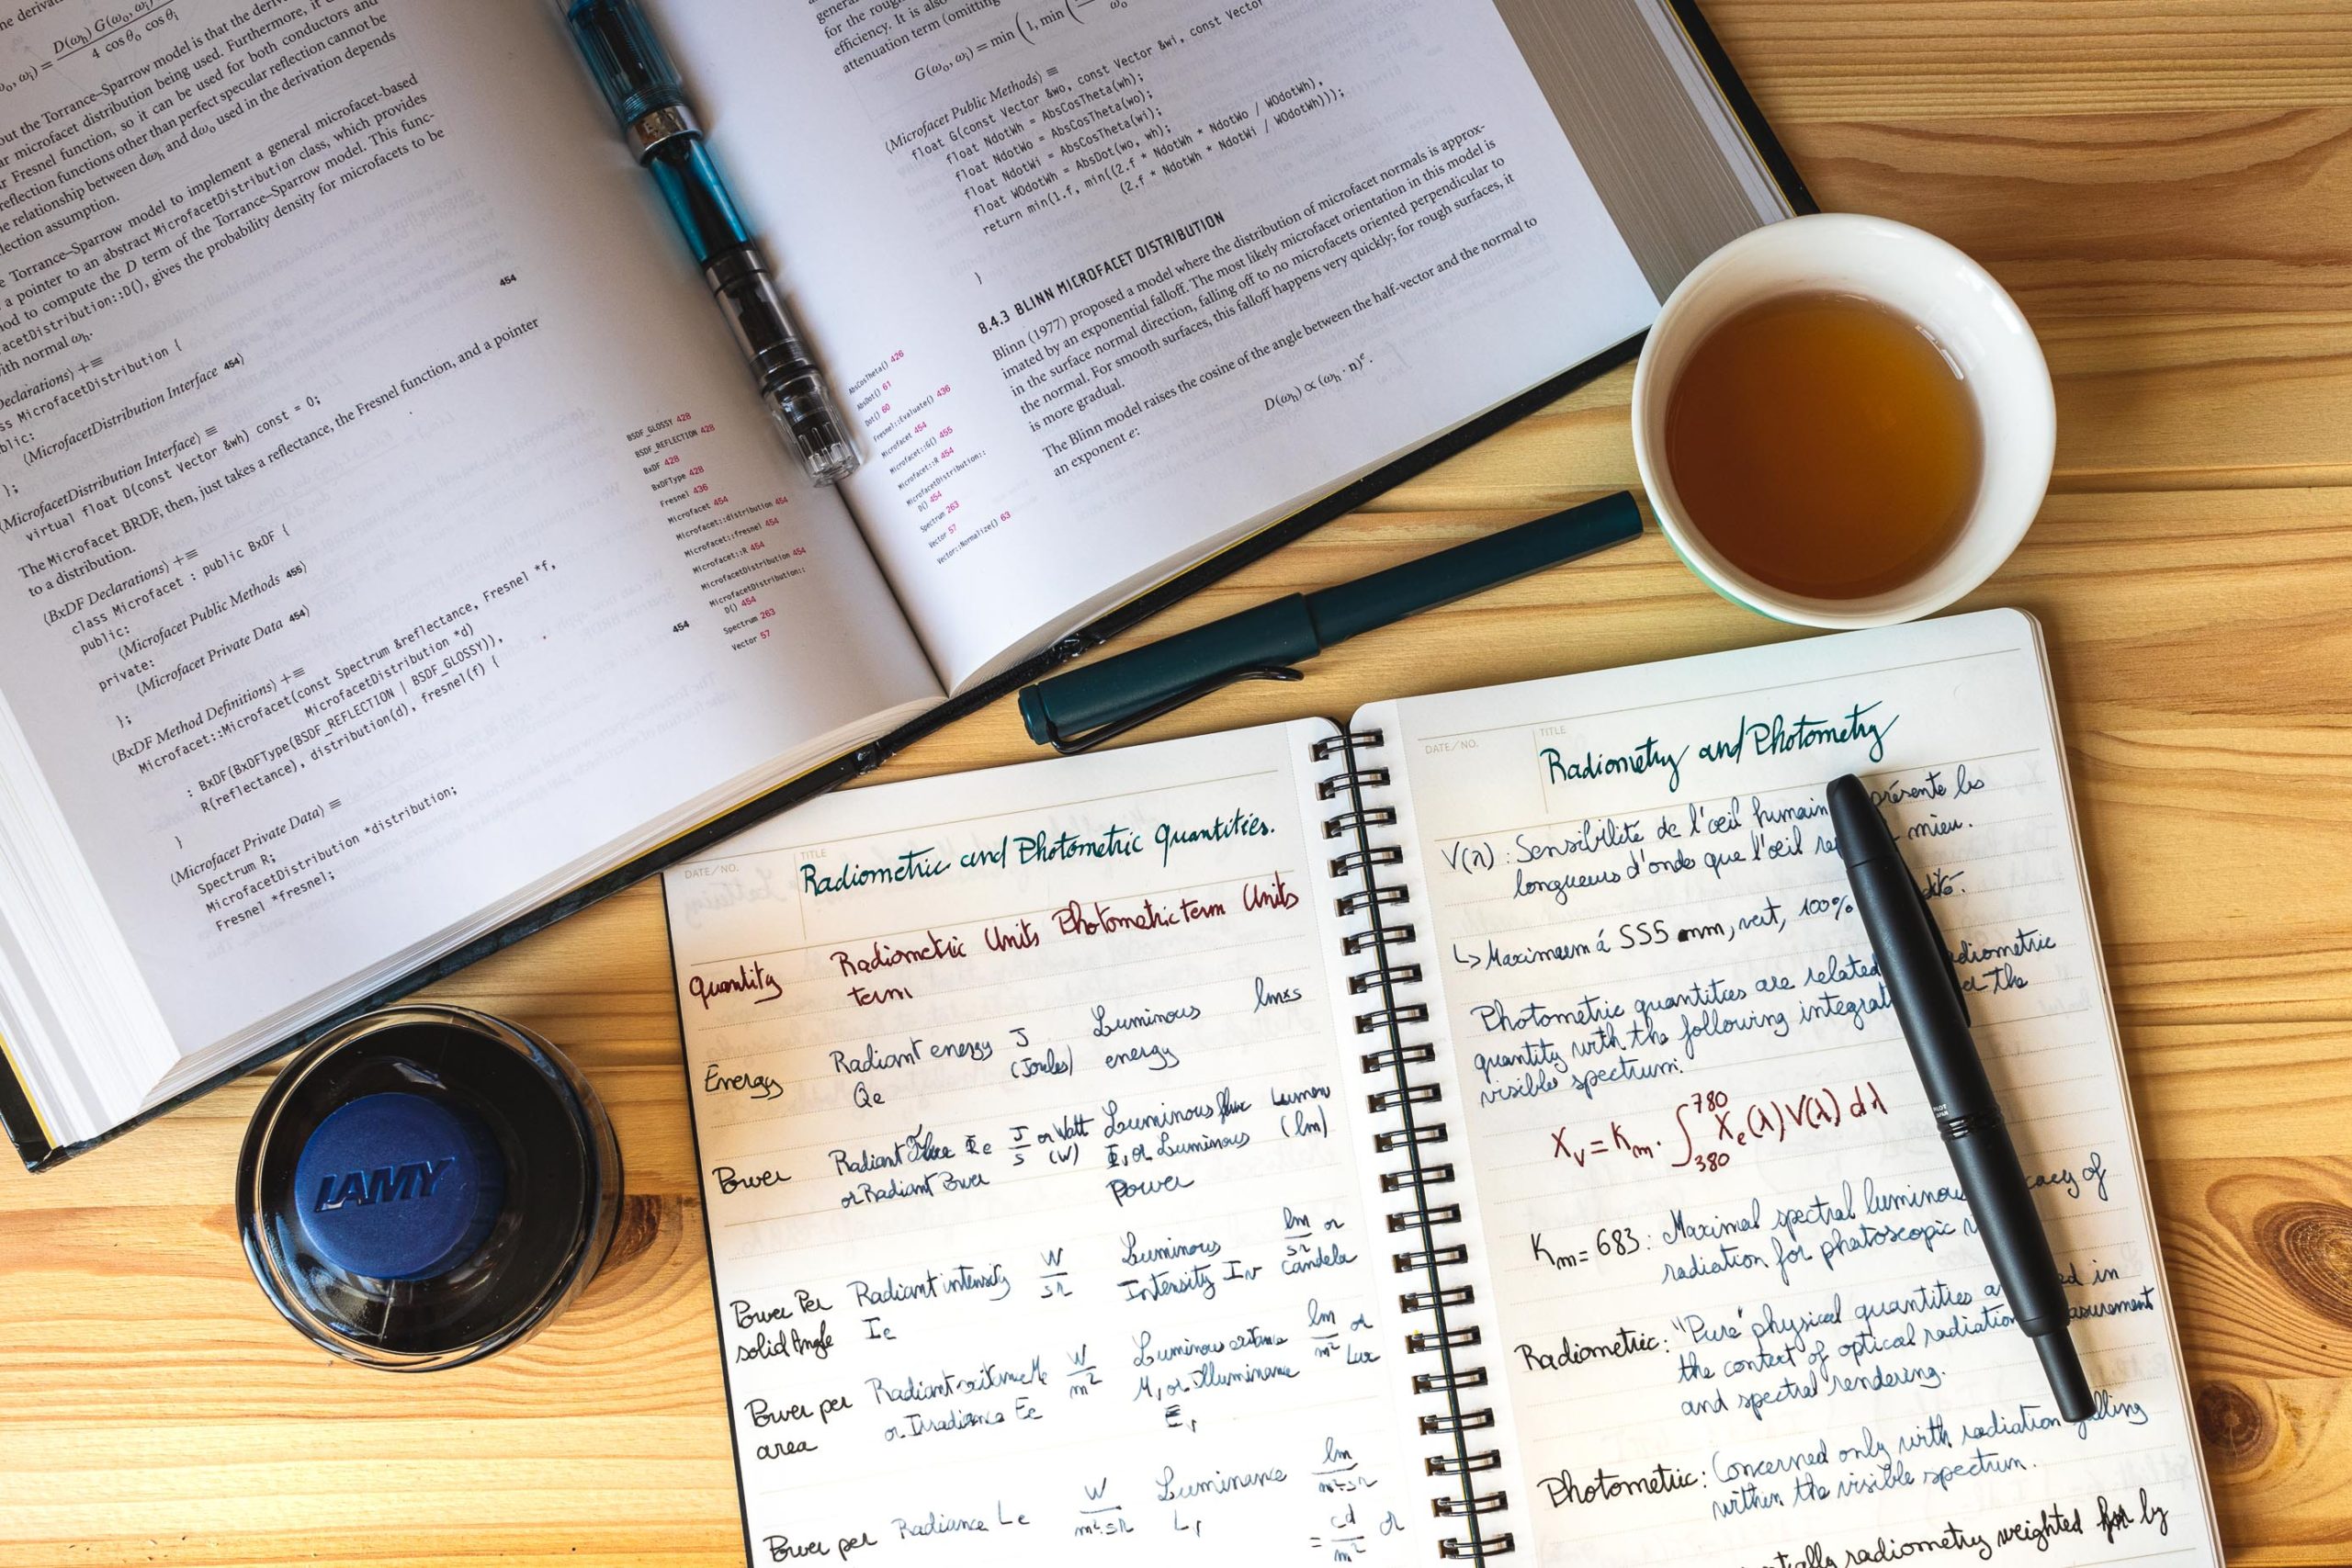 the deriva
D(ωh) G(ωo, ωi)
ωo, ωi) =
4 cos θo cos θi
out the Torrance–Sparrow model is that the deriv
ar microfacet distribution being used. Furthermore, it
r Fresnel function, so it can be used for both conductors and
reflection functions other than perfect specular reflection cannot be
he relationship between dωh and dωo used in the derivation depends
lection assumption.
Torrance–Sparrow model to implement a general microfacet-based
a pointer to an abstract MicrofacetDistribution class, which provides
hod to compute the D term of the Torrance–Sparrow model. This func-
acetDistribution::D(), gives the probability density for microfacets to be
with normal ωh.
Declarations⟩ +≡
454
ss MicrofacetDistribution {
blic:
⟨MicrofacetDistribution Interface 454⟩
};
⟨MicrofacetDistribution Interface⟩ ≡
virtual float D(const Vector &wh) const = 0;
The Microfacet BRDF, then, just takes a reflectance, the Fresnel function, and a pointer
to a distribution.
⟨BxDF Declarations⟩ +≡
class Microfacet : public BxDF {
public:
⟨Microfacet Public Methods 455⟩
private:
⟨Microfacet Private Data 454⟩
};
⟨BxDF Method Definitions⟩ +≡
Microfacet::Microfacet(const Spectrum &reflectance, Fresnel *f,
MicrofacetDistribution *d)
: BxDF(BxDFType(BSDF_REFLECTION | BSDF_GLOSSY)),
R(reflectance), distribution(d), fresnel(f) {
}
⟨Microfacet Private Data⟩ ≡
454
Spectrum R;
MicrofacetDistribution *distribution;
Fresnel *fresnel;
BSDF_GLOSSY 428
BSDF_REFLECTION 428
BxDF 428
BxDFType 428
Fresnel 436
Microfacet 454
Microfacet::distribution 454
Microfacet::fresnel 454
Microfacet::R 454
MicrofacetDistribution 454
MicrofacetDistribution::
D() 454
Spectrum 263
Vector 57
gener
for the roug
efficiency. It is also
attenuation term (omitting
G(ωo, ωi) = min (1, min (
ωo
⟨Microfacet Public Methods⟩ ≡
float G(const Vector &wo, const Vector &wi, const Vector
float NdotWh = AbsCosTheta(wh);
float NdotWo = AbsCosTheta(wo);
float NdotWi = AbsCosTheta(wi);
float WOdotWh = AbsDot(wo, wh);
return min(1.f, min((2.f * NdotWh * NdotWo / WOdotWh),
(2.f * NdotWh * NdotWi / WOdotWh)));
}
8.4.3 BLINN MICROFACET DISTRIBUTION
Blinn (1977) proposed a model where the distribution of microfacet normals is approx-
imated by an exponential falloff. The most likely microfacet orientation in this model is
in the surface normal direction, falling off to no microfacets oriented perpendicular to
the normal. For smooth surfaces, this falloff happens very quickly; for rough surfaces, it
is more gradual.
The Blinn model raises the cosine of the angle between the half-vector and the normal to
an exponent e:
D(ωh) ∝ (ωh · n)^e.
AbsCosTheta() 426
AbsDot() 61
Dot() 60
Fresnel::Evaluate() 436
Microfacet 454
Microfacet::G() 455
Microfacet::R 454
MicrofacetDistribution::
D() 454
Spectrum 263
Vector 57
Vector::Normalize() 63
LAMY
DATE/NO.
TITLE
Radiometric and Photometric Quantities.
Quantity Radiometric Units Photometric term Units
term
Energy Radiant energy J Luminous lm×s
Qe (Joules) energy
Power Radiant Flux Φe J/s or Watt Luminous flux Lumens
or Radiant Power (W) Φv or Luminous (lm)
Power
Power Per Radiant intensity W/sr Luminous lm/sr or
solid Angle Ie Intensity Iv candela
Power per Radiant exitance Me W/m² Luminous exitance lm/m² or
area or Irradiance Ee Mv or Illuminance Lux
Ev
Power per Radiance Le W/m²·sr Luminance lm/m²·sr
Lv = cd/m² or
DATE/NO.
TITLE
Radiometry and Photometry
V(λ) : Sensibilité de l'œil humain présente les
longueurs d'onde que l'œil re mieu.
↳ Maximum à 555 nm, vert, 100%
Photometric quantities are related adiometric
quantity with the following integral the
visible spectrum:
Xv = Km · ∫380^780 Xe(λ) V(λ) dλ
Km = 683 : Maximal spectral luminous cacy of
radiation for photoscopic
Radiometric: "Pure" physical quantities a ed in
the context of optical radiation asurement
and spectral rendering.
Photometric: Concerned only with radiation falling
within the visible spectrum.
tially radiometry weighted by